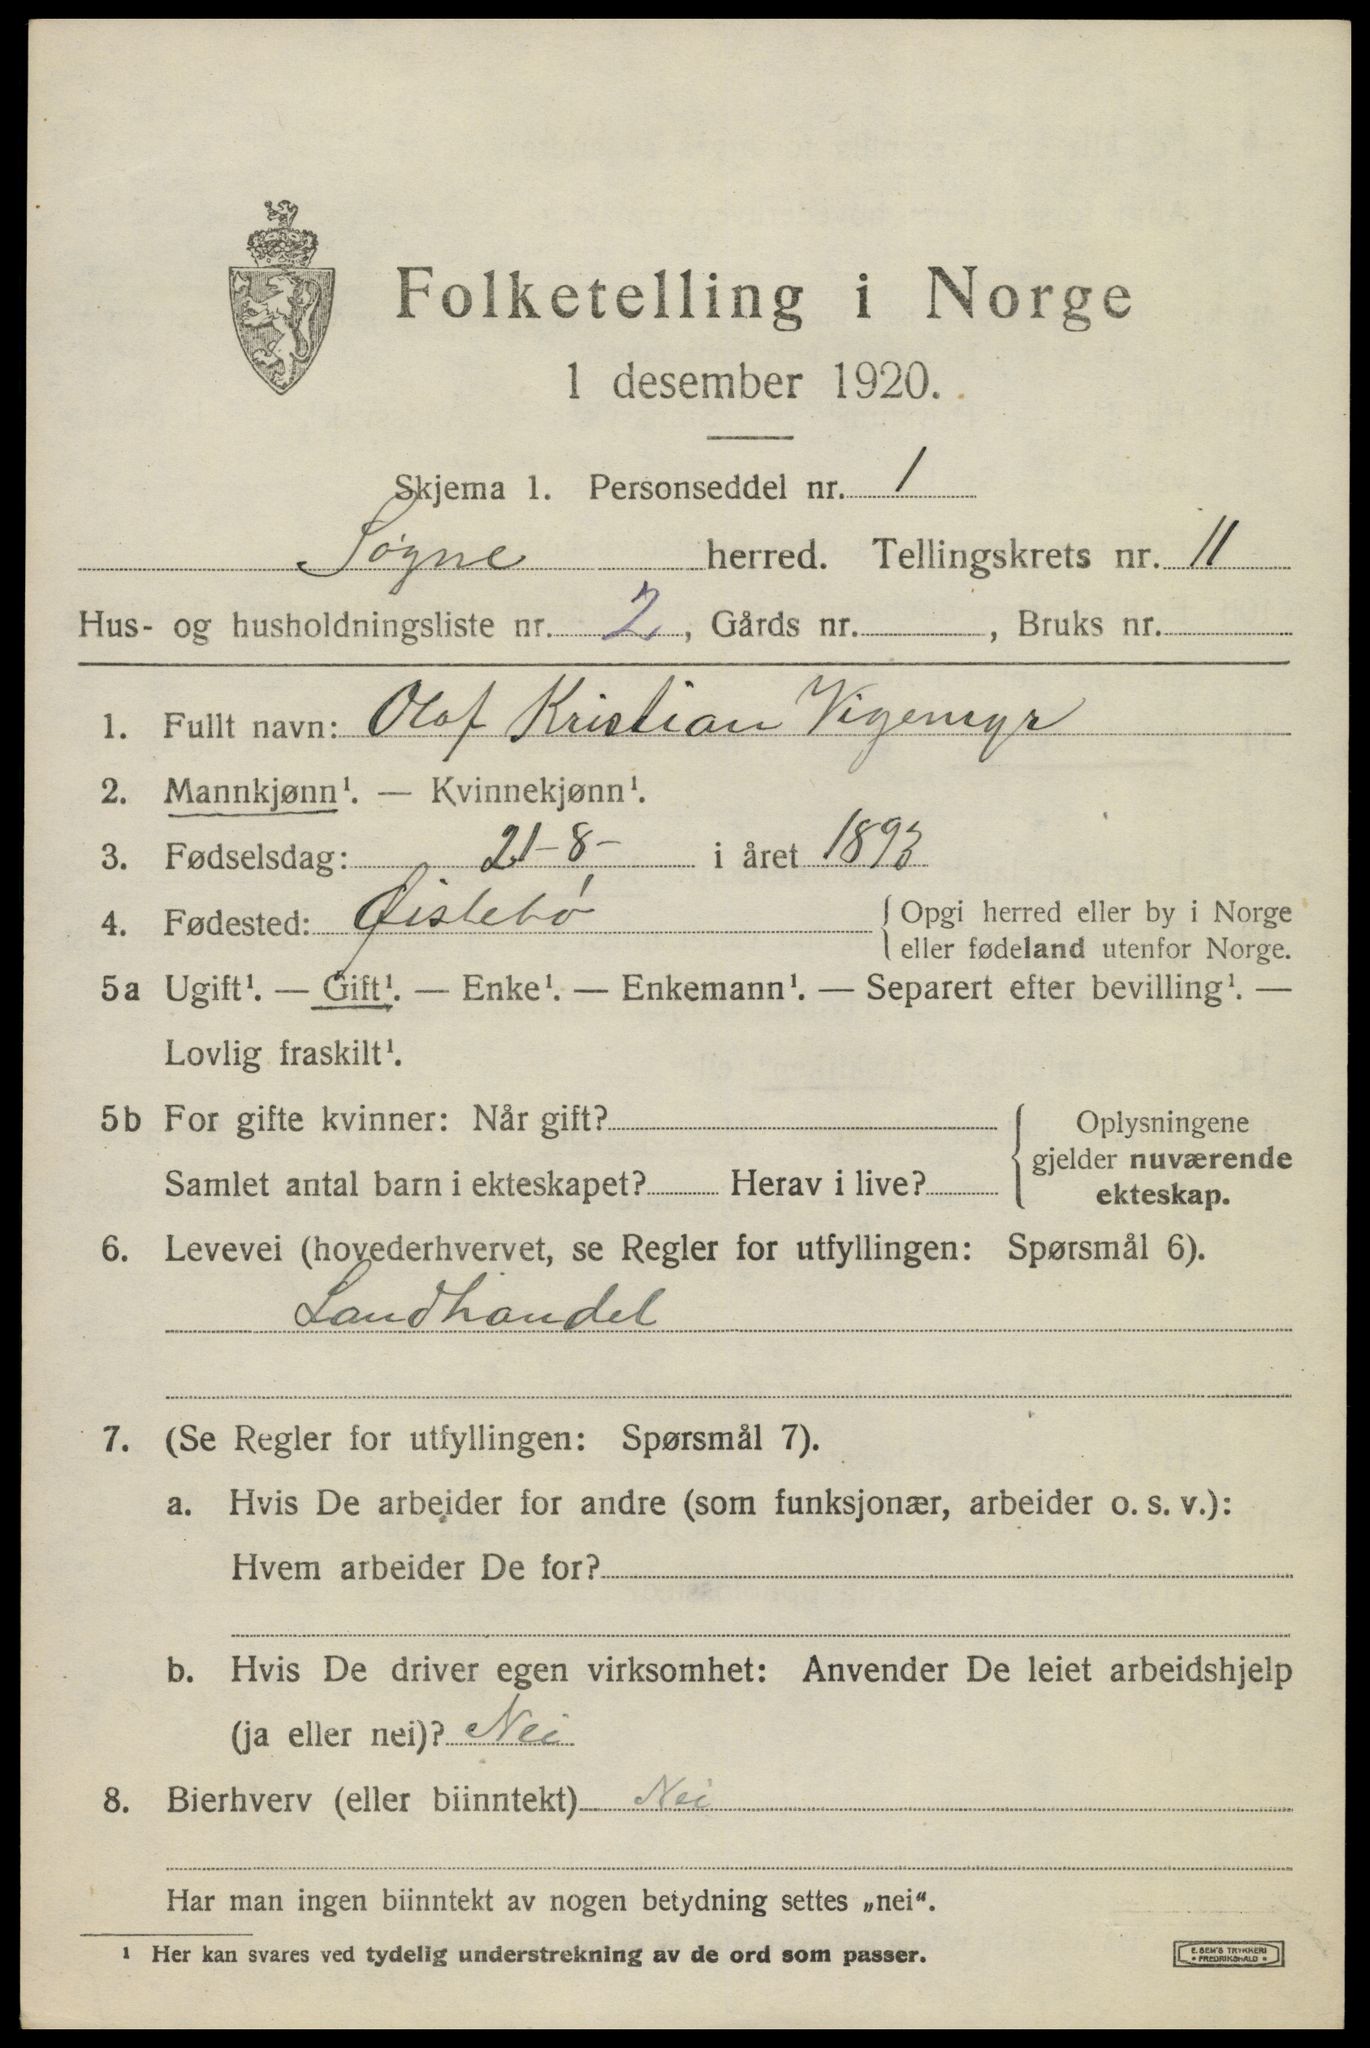 Folketelling i Norge
1 desember 1920.
Skjema 1. Personseddel nr. 1
Søgne herred. Tellingskrets nr. 11
Hus- og husholdningsliste nr. 2, Gårds nr. , Bruks nr.
1. Fullt navn: Olaf Kristian Vigemyr
2. Mannkjønn¹. — Kvinnekjønn¹.
3. Fødselsdag: 21-8- i året 1893
4. Fødested: Øislebø { Opgi herred eller by i Norge
eller fødeland utenfor Norge.
5a Ugift¹. — Gift¹. — Enke¹. — Enkemann¹. — Separert efter bevilling¹. —
Lovlig fraskilt¹.
5b For gifte kvinner: Når gift? { Oplysningene
gjelder nuværende
Samlet antal barn i ekteskapet? Herav i live? ekteskap.
6. Levevei (hovederhvervet, se Regler for utfyllingen: Spørsmål 6).
Landhandel
7. (Se Regler for utfyllingen: Spørsmål 7).
a. Hvis De arbeider for andre (som funksjonær, arbeider o. s. v.):
Hvem arbeider De for?
b. Hvis De driver egen virksomhet: Anvender De leiet arbeidshjelp
(ja eller nei)? Nei
8. Bierhverv (eller biinntekt) Nei
Har man ingen biinntekt av nogen betydning settes „nei“.
¹ Her kan svares ved tydelig understrekning av de ord som passer.
E. SEM'S TRYKKERI
• FREDRIKSHALD •